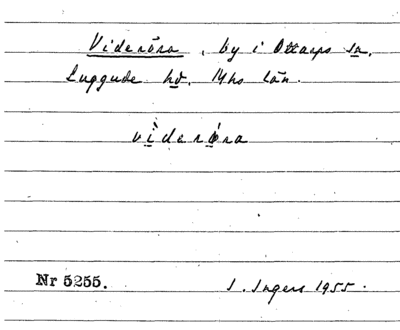 Videröra, by i Ottarps sn,
Luggude hd. Mhs län.
vìderǿra
Nr 5255.
I. Ingers 1955.